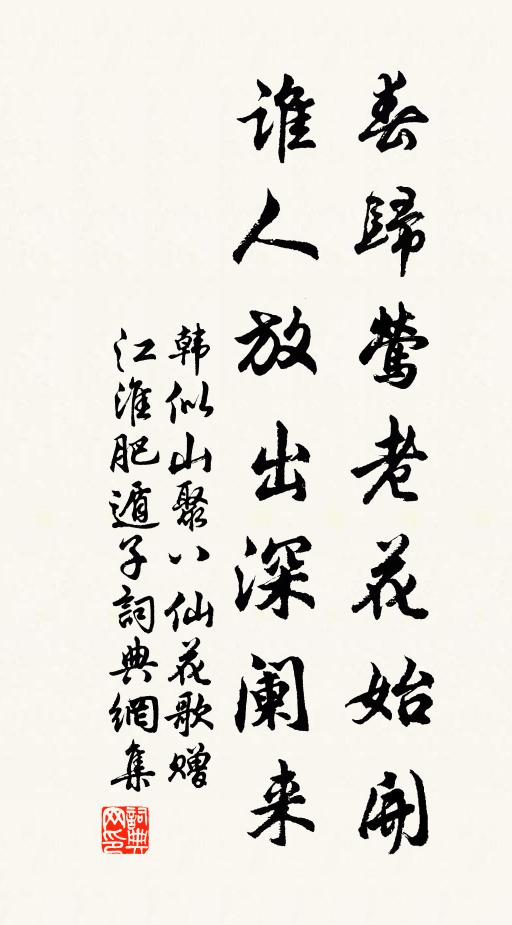 春歸鶯老花始開
誰人放出深闌来
韩似山聚八仙花歌赠
江淮肥遁子詞典網集
詞典网印